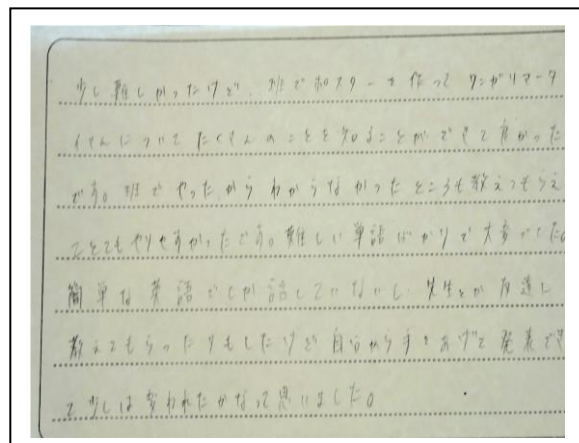 少し難しかったけど、班でポスターを作ってワンガリマータ
イさんについてたくさんのことを知ることができて良かった
です。班でやったからわからなかったところも教えてもらえ
てとてもやりやすかったです。難しい単語ばかりで大変でした。
簡単な英語でしか話していないし、先生とか友達に
教えてもらったりもしたけど自分から手をあげて発表でき
て少しは変われたかなって思いました。